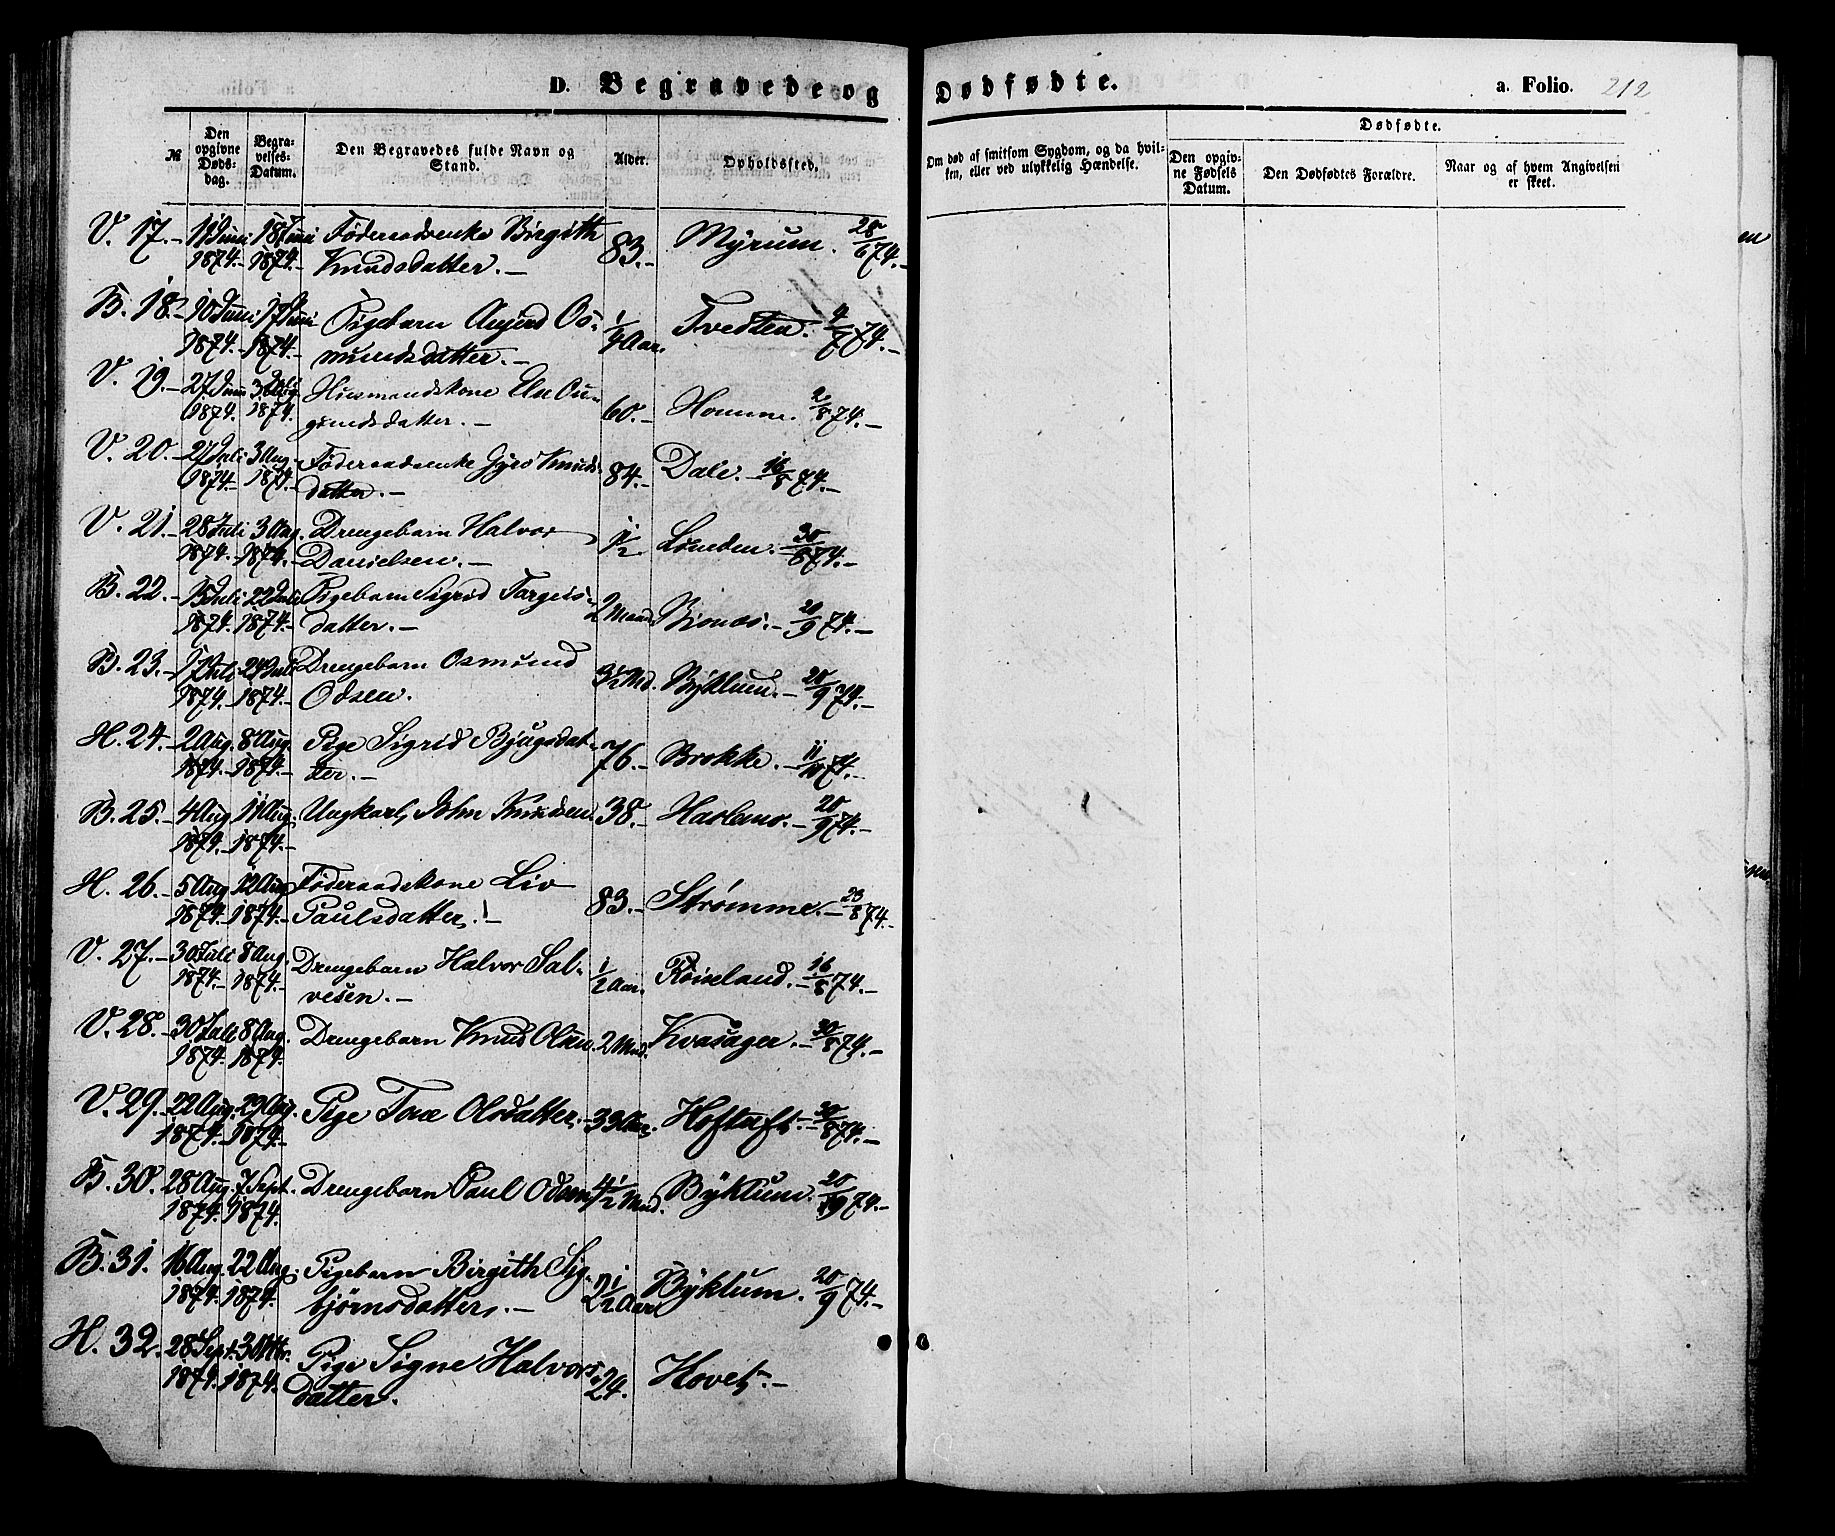 D. Begravede og Dødfødte. a. Folio. 212
№ Den opgivne Døds-dag. Begra-velses-Datum. Den Begravedes fulde Navn og Stand. Alder. Opholdssted.
Om død af smitsom Sygdom, og da hvil-ken, eller ved ulykkelig Hændelse. Dødfødte. Den opgiv-ne Fødsels Datum. Den Dødfødtes Forældre. Naar og af hvem Angivelsen er skeet.
V. 17.- 11 Juni 18 Juni Föderaadsenke Birgith 83.- Myrum. 28/6 74.-
1874.- 1874.- Knudsdatter.-
B. 18.- 10 Juni 17 Juni Pigebarn Os- 1/4 Aar. Tvedten. 74.-
1874.- 1874.- mundsdatter.-
V. 19.- 27 Husmandskone 60.- Homme. 2/8 74.-
1874. 1874. datter.-
V. 20.- 27 Juli 3 Aug. Föderaadsenke Gyro Knuds- 84.- Dale.- 16/8 74.-
1874.- 1874.- datter.-
V. 21.- 28 Juli 3 Aug. Drengebarn Halvor 1 1/2 30/8 74.-
1874.- 1874.- Danielsen.-
B. 22.- 15 Juli 22 Juli Pigebarn Sigrid Targeis- 2 Maan. 20/9 74.-
1874. 1874.- datter.-
B. 23.- 17 Juli 24 Juli Drengebarn Osmund 3 1/2 Md. Byklum.- 20/9 74.-
1874.- 1874.- Odsen.
H. 24.- 2 Aug. 8 Aug. Pige Sigrid Bjugsdat- 76.- Brokke.- 11/10 74.-
1874.- 1874.- ter.-
B. 25.- 4 Aug. 11 Aug. Ungkarl, John Knudsen. 38.- 20/9 74.-
1874.- 1874.-
H. 26.- 5 Aug. 12 Aug. Föderaadskone Liv 83.- Strømme.- 23/8 74.-
1874.- 1874.- Paulsdatter.-
V. 27.- 30 Juli 8 Aug. Drengebarn Halvor Sal- 1/2 Aar. Röiseland.- 16/8 74.-
1874.- 1874.- vesen.-
V. 28.- 30 Juli 8 Aug. Drengebarn Knud Olsen. 2 Mnd. Kvasager.- 30/8 74.-
1874.- 1874.-
V. 29.- 22 Aug. 29 Aug. Pige Torœ Olsdatter.- 33 Aar. Hoftuft.- 30/8 74.-
1874.- 1874.-
B. 30. 28 Aug. 7 Sept. Drengebarn Paul Odsen 4 1/2 Mnd. Byklum. 20/9 74.-
1874. 1874.
B. 31. 16 Aug. 22 Aug. Pigebarn Birgith Sig- 2 1/2 Aar Byklum. 20/9 74.-
1874. 1874. bjørnsdatter.-
H. 32. 28 Sept. Pige Signe Halvors- 24. Hovet.-
1874. 1874. datter.